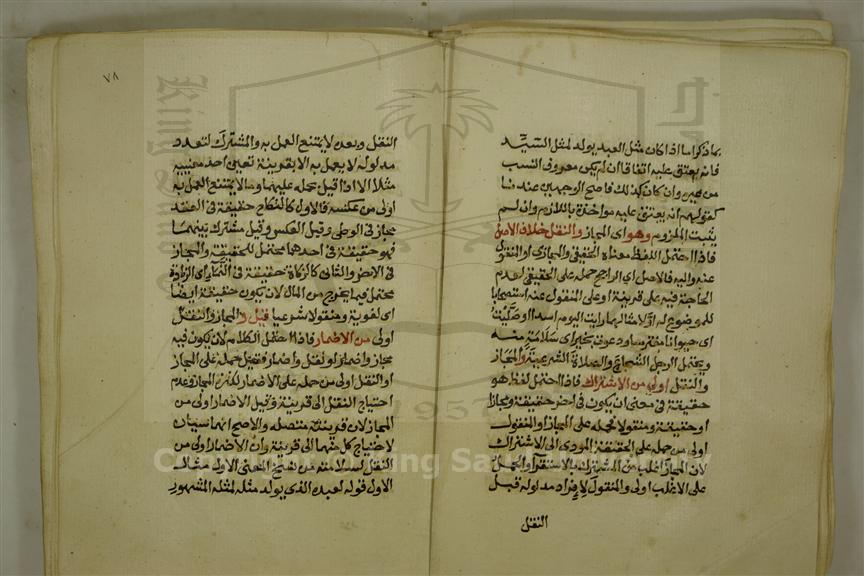 بما ذكر اما اذا كان مثل العبد يولد لمثل السيد
فانه يعتق عليه اتفاقا ان لم يكن معروف النسب
من غيره وان كان كذلك فاصح الوجهين عندنا
كقولهم انه يعتق عليه مواخذة باللازم وان لم
يثبت الملزوم وهو اى المجاز والنقل خلاف الاصل
فاذا احتمل اللفظ معناه الحقيقى والمجازى او المنقول
عنه واليه فالاصل اى الراجح حمله على الحقيقى لعدم
الحاجة فيه على قرينة او على المنقول عنه استصحابا
للموضوع له اولا مثالهما رايت اليوم اسدا وصليت
اى حيوانا مفترسا ودعوت بخير اى سلامة منه
ويحتمل الرجل الشجاع والصلاة الشرعية والمجاز
والنقل اولى من الاشتراك فاذا احتمل لفظ هو
حقيقة فى معنى ان يكون فى اخر حقيقة ومجازا
او حقيقة ومنقولا فحمله على المجاز او المنقول
اولى من حمله على الحقيقة المودى الى الاشتراك
لان المجاز اغلب من المشترك بالاستقرا والحمل
على الاغلب اولى والمنقول لافراد مدلوله قبل
النقل
٧٨
النقل وبعده لا يمتنع العمل به والمشترك لتعدد
مدلوله لا يعمل به الا بقرينة تعين احد معنييه
مثلا الا اذا قيل بحمله عليهما وما لا يمتنع العمل به
اولى من عكسه فالاول كالنكاح حقيقة فى العقد
مجاز فى الوطى وقيل العكس وقيل مشترك بينهما
فهو حقيقة فى احدهما محتمل للحقيقة والمجاز
فى الاخر والثانى كالزكاة حقيقة فى النماء اى الزيادة
محتمل فيما يخرج من المال لان يكون حقيقة ايضا
اى لغوية ومنقولا شرعيا قيل والمجاز والنقل
اولى من الاضمار فاذا احتمل الكلام لان يكون فيه
مجاز واضمار او نقل واضمار فقيل حمله على المجاز
او النقل اولى من حمله على الاضمار لكثرة المجاز وعدم
احتياج النقل الى قرينة وقيل الاضمار اولى من
المجاز لان قرينته متصله والاصح انهما سيان
لاحتياج كل منهما الى قرينة وان الاضمار اولى من
النقل لسلامته من نسخ المعنى الاول مثال
الاول قوله لعبده الذى يولد مثله لمثله المشهور